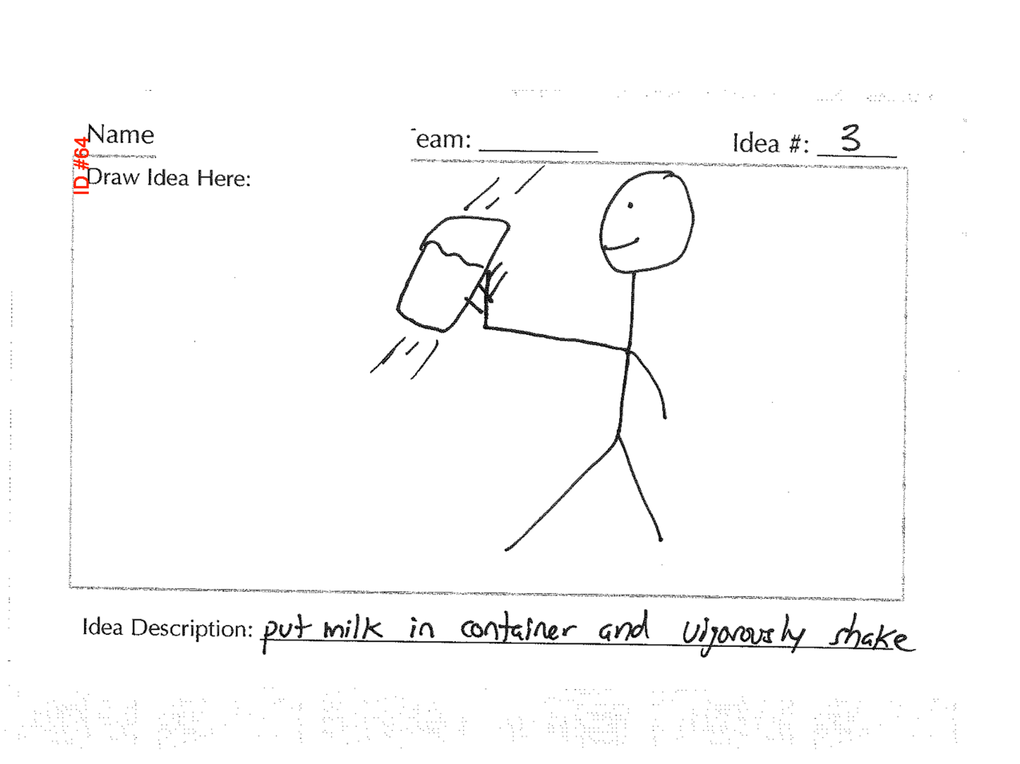 ID #64
Name eam: Idea #: 3
Draw Idea Here:
Idea Description: put milk in container and vigorously shake